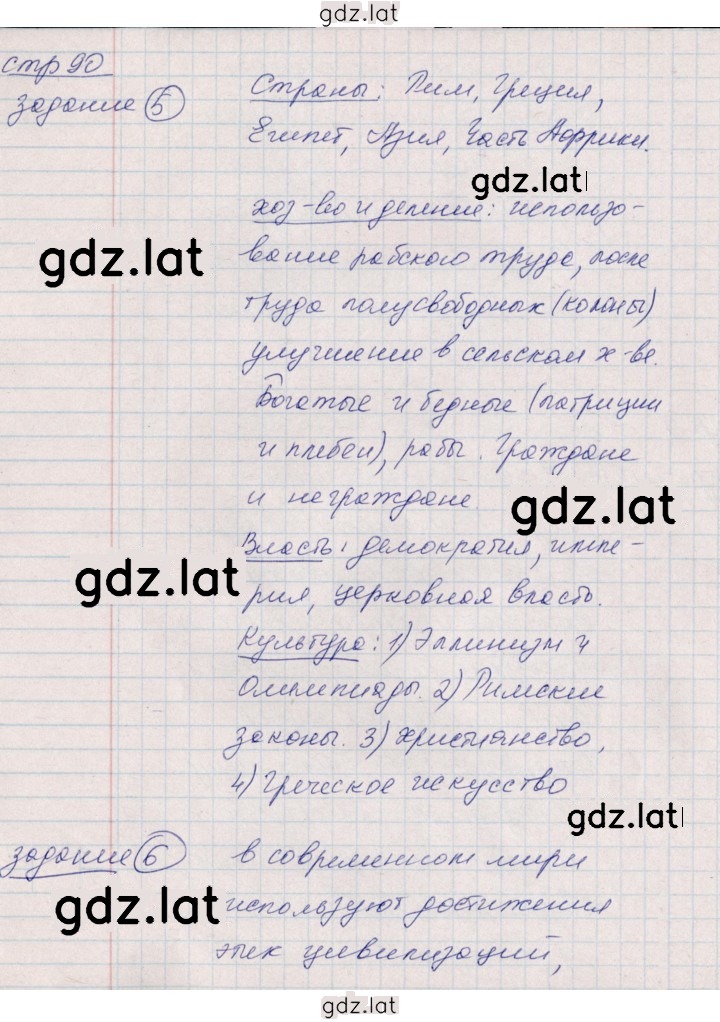 gdz.lat
стр 90
задание 5
Страны: Рим, Греция,
Египет, Азия, Часть Африки.
gdz.lat
хоз-во и деление: использо-
gdz.lat
вание рабского труда, после
труда полусвободных (колоны)
улучшение в сельском х-ве.
Богатые и бедные (патриции
и плебеи), рабы. Граждане
и неграждане.
gdz.lat
Власть: демократия, импе-
gdz.lat
рия, церковная власть.
Культура: 1) Эллинизм и
Олимпиады. 2) Римские
законы. 3) христианство,
4) Греческое искусство
gdz.lat
задание 6
в современном мири
gdz.lat
используют достижения
этих цивилизаций,
gdz.lat